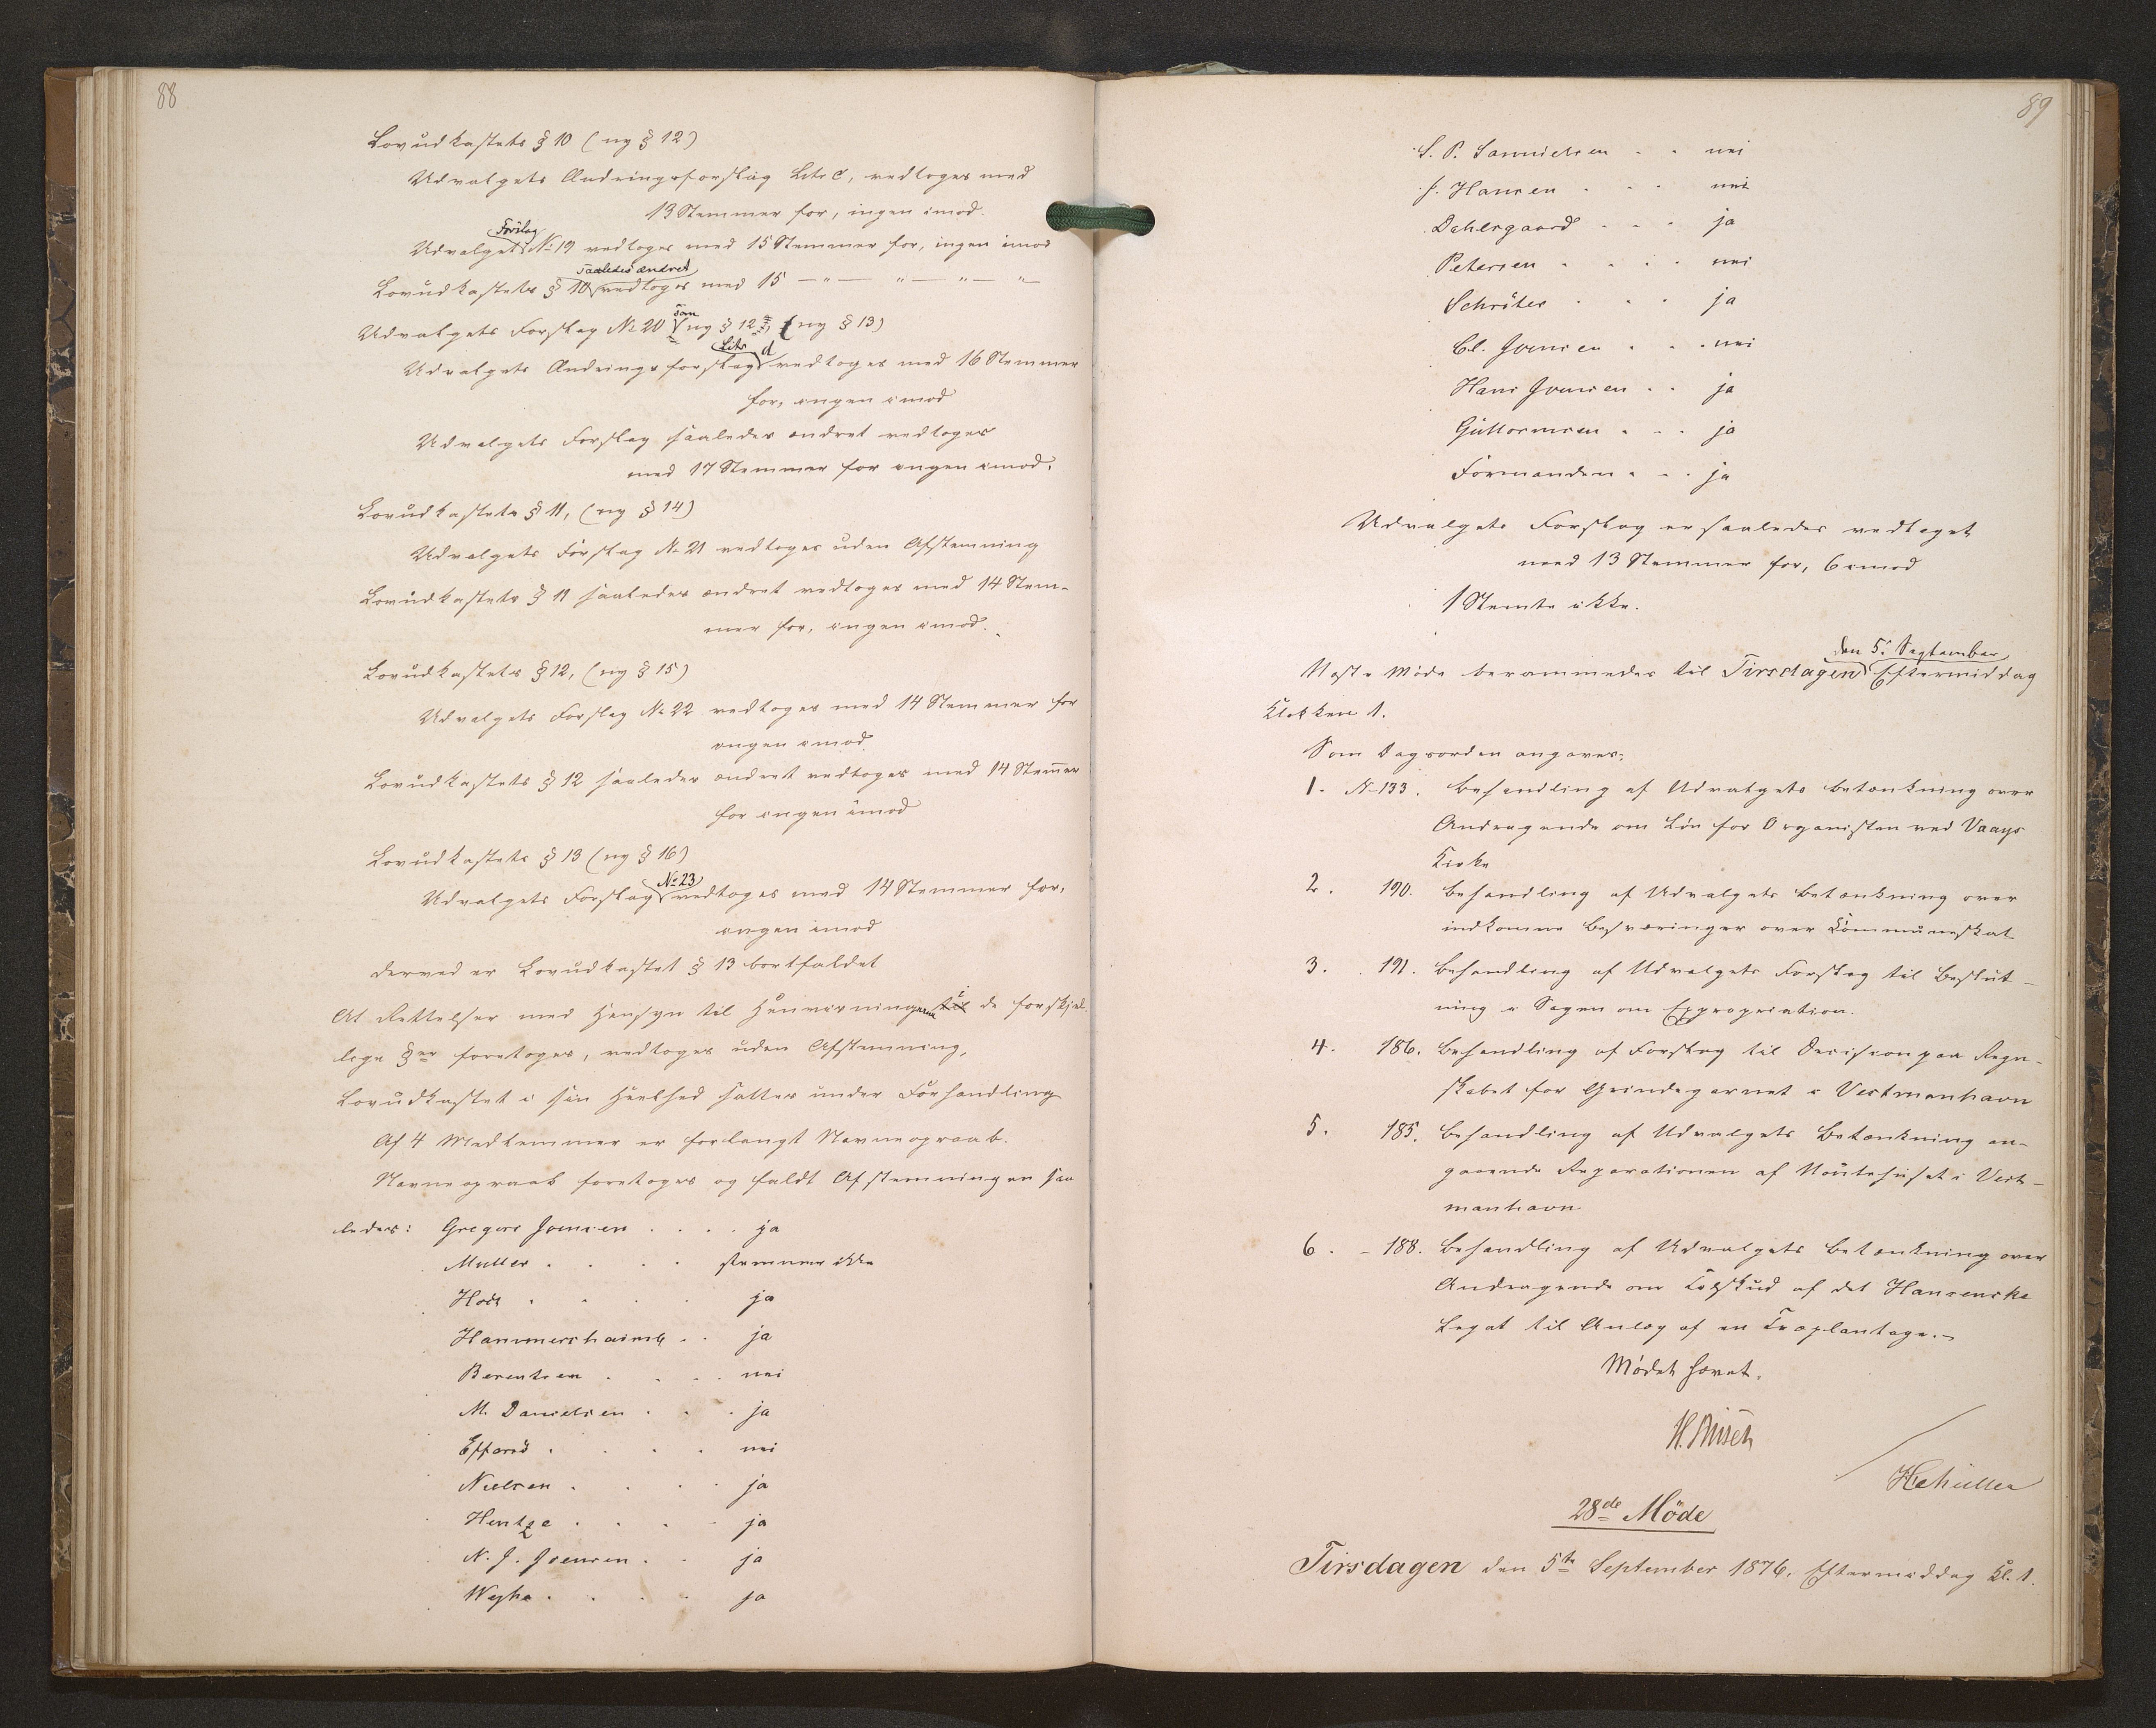 88
Lovudkastets § 10 (ny § 12)
Udvalgets Ændringsforslag Litr C, vedtoges med
13 Stemmer for, ingen imod.
Udvalgets Forslag № 19 vedtoges med 15 Stemmer for, ingen imod
Lovudkastets § 10 saaledes ændret vedtoges med 15 — " — " — " — " —
Udvalgets Forslag № 20 som ny § 12, (ny § 13)
Udvalgets Ændringsforslag Litr d vedtoges med 16 Stemmer
for, ingen imod
Udvalgets Forslag saaledes ændret vedtoges
med 17 Stemmer for ingen imod.
Lovudkastets § 11, (ny § 14)
Udvalgets Forslag № 21 vedtoges uden Afstemning
Lovudkastets § 11 saaledes ændret vedtoges med 14 Stem-
mer for, ingen imod.
Lovudkastets § 12, (ny § 15)
Udvalgets Forslag № 22 vedtoges med 14 Stemmer for
ingen imod
Lovudkastets § 12 saaledes ændret vedtoges med 14 Stem̅er
for ingen imod
Lovudkastets § 13 (ny § 16)
Udvalgets Forslag № 23 vedtoges med 14 Stemmer for,
ingen imod
derved er Lovudkastet § 13 bortfaldet
At Rettelser med Hensyn til Henvisningerne i de forskjel-
lige §er foretoges, vedtoges uden Afstemning.
Lovudkastet i sin Heelhed sattes under Forhandling
Af 4 Medlemmer er forlangt Navneopraab.
Navneopraab foretoges og faldt Afstemningen saa
ledes: Gregers Joensen . . . . ja
Müller . . . . stemmer ikke
Holt . . . . ja
Hammershaimb . . ja
Berentsen . . . . nei
M. Danielsen . . . ja
Effersö . . . . nei
Nielsen . . . . ja
Hentze . . . . ja
N. J. Joensen . . ja
Weyhe . . . . ja
89
S. P. Danielsen . . nei
J. Hansen . . . nei
Dahlsgaard . . . ja
Petersen . . . . nei
Schröter . . . ja
Cl. Joensen . . . nei
Hans Joensen . . ja
Guttormsen . . . ja
Formanden . . . ja
Udvalgets Forslag er saaledes vedtaget
med 13 Stemmer for, 6 imod
1 Stemte ikke.
Næste Møde berammedes til Tirsdagen den 5. September Eftermiddag
Klokken 1.
Som Dagsorden angaves:
1. № 133. Behandling af Udvalgets Betænkning over
Andragende om Løn for Organisten ved Vaags
Kirke
2. 190. Behandling af Udvalgets Betænkning over
indkomne Besværinger over Kommuneskat
3. 191. Behandling af Udvalgets Forslag til Beslut-
ning i Sagen om Expropriation.
4. 186. Behandling af Forslag til Decision paa Regn-
skabet for Grindegarnet i Vestmanhavn
5. 185. Behandling af Udvalgets Betænkning an-
gaaende Reparationen af Nöütehuset i Vest-
manhavn
6. - 188. Behandling af Udvalgets Betænkning over
Andragende om Tilskud af det Hansenske
Legat til Anlæg af en Træplantage.-
Mødet hævet.
H. Müller
28de Möde
Tirsdagen den 5te September 1876. Eftermiddag Kl. 1.